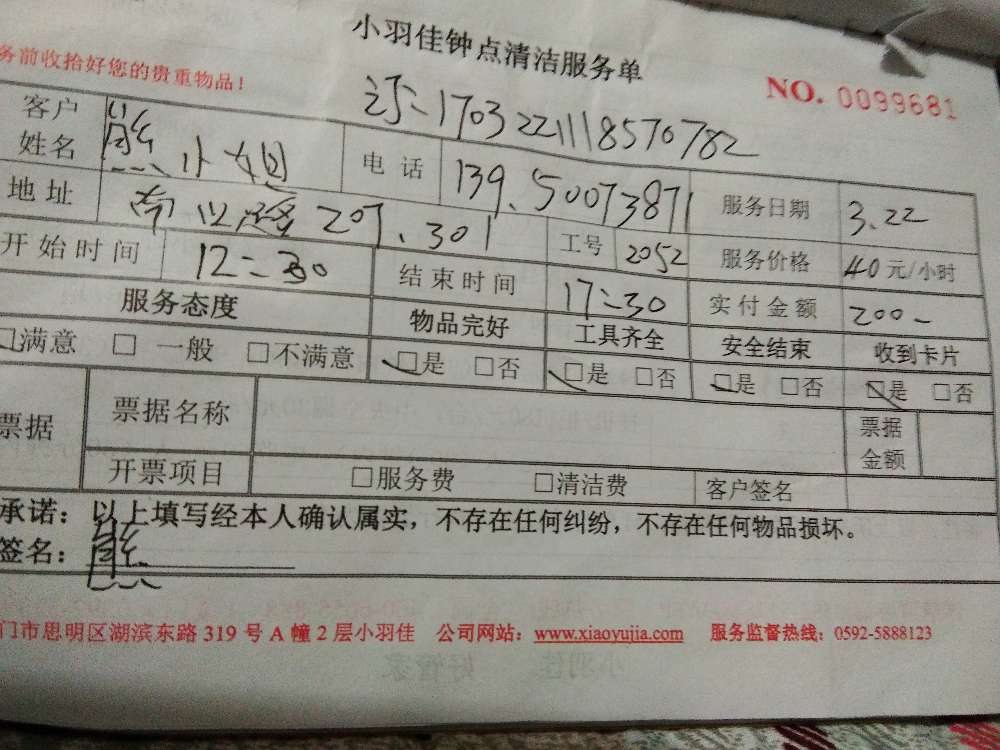 小羽佳钟点清洁服务单
务前收拾好您的贵重物品！
NO. 0099681
订:1703221118570782
客户姓名 熊小姐 电话 139.50073871 服务日期 3.22
地址 207.301 工号 2052 服务价格 40元/小时
开始时间 12:30 结束时间 17:30 实付金额 200-
服务态度 物品完好 工具齐全 安全结束 收到卡片
□满意 □一般 □不满意 □是 □否 □是 □否 □是 □否 □是 □否
票据 票据名称 票据金额
开票项目 □服务费 □清洁费 客户签名
承诺：以上填写经本人确认属实，不存在任何纠纷，不存在任何物品损坏。
签名：熊
门市思明区湖滨东路 319 号 A 幢 2 层小羽佳 公司网站：www.xiaoyujia.com 服务监督热线：0592-5888123